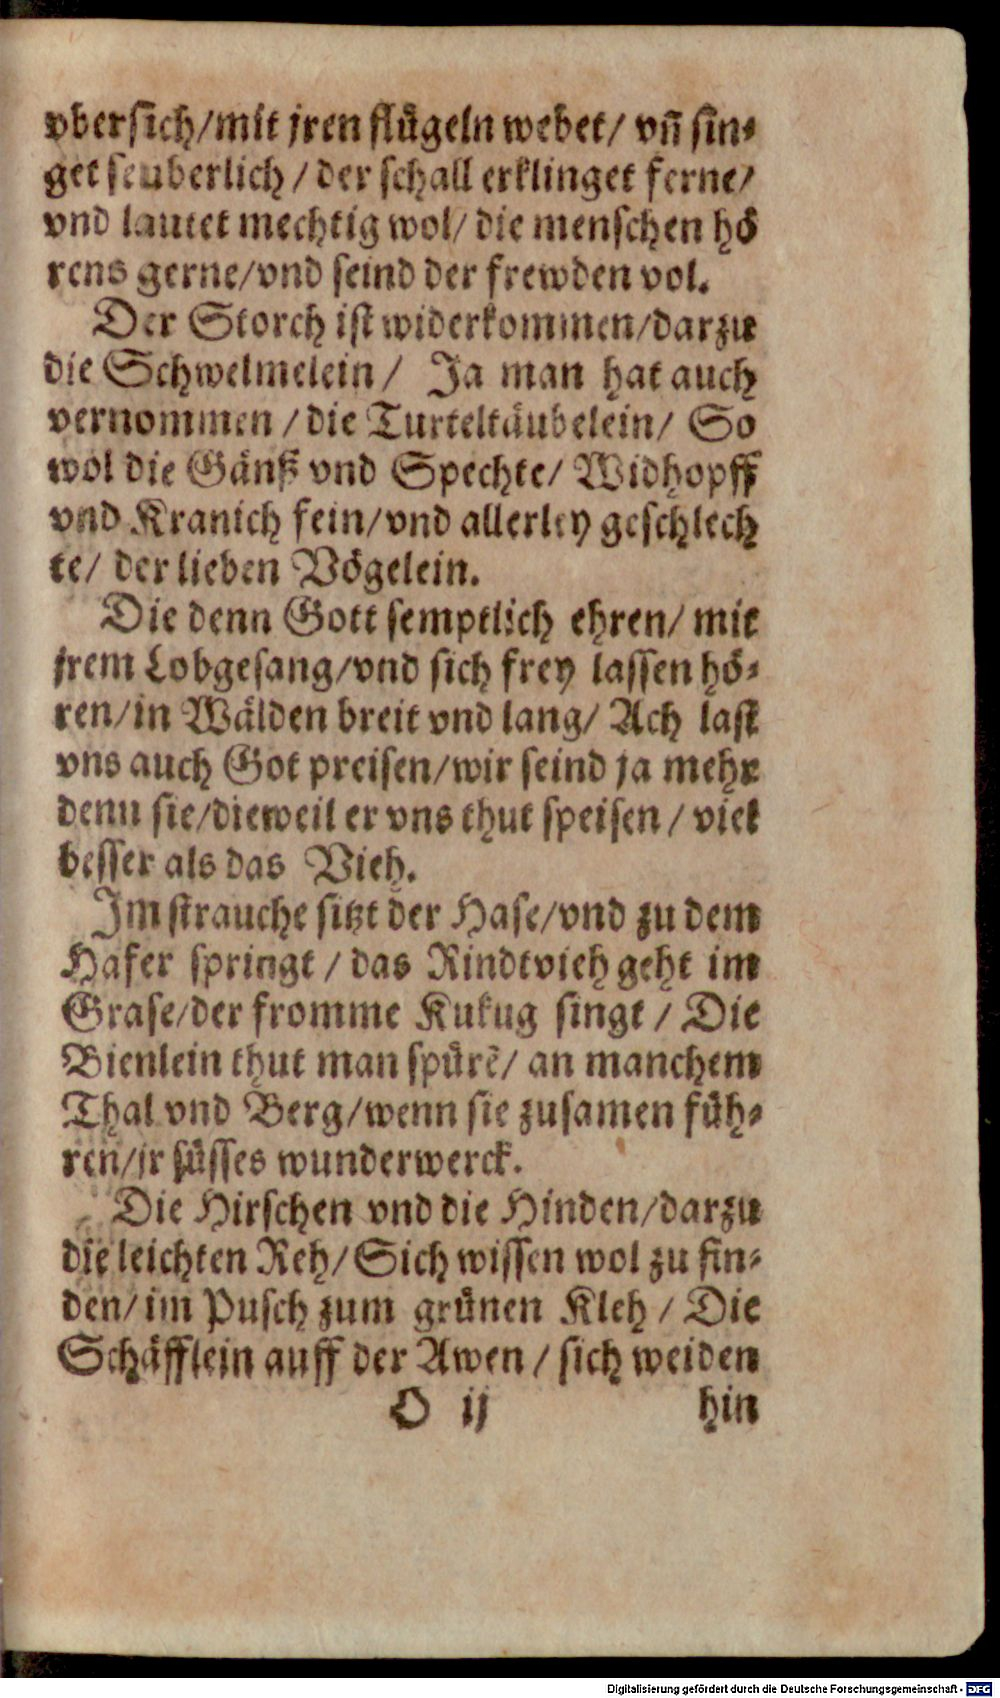 vbersich/mit jren flügeln webet/ vñ sin-
get seuberlich / der schall erklinget ferne/
vnd lautet mechtig wol/ die menschen hö
rens gerne/vnd seind der frewden vol.
Der Storch ist widerkommen/darzu
die Schwelmelein / Ja man hat auch
vernommen / die Turteltäubelein/ So
wol die Gänß vnd Spechte/ Widhopff
vnd Kranich fein/vnd allerley geschlech
te/ der lieben Vögelein.
Die denn Gott semptlich ehren/ mit
jrem Lobgesang/vnd sich frey lassen hö-
ren/in Wälden breit vnd lang/ Ach last
vns auch Got preisen/wir seind ja mehr
denn sie/dieweil er vns thut speisen / viel
besser als das Vieh.
Im strauche sitzt der Hase/vnd zu dem
Hafer springt / das Rindtvieh geht im
Grase/der fromme Kukug singt / Die
Bienlein thut man spürẽ/ an manchem
Thal vnd Berg/wenn sie zusamen füh-
ren/jr süsses wunderwerck.
Die Hirschen vnd die Hinden/darzu
die leichten Reh/ Sich wissen wol zu fin-
den/ im Pusch zum grünen Kleh / Die
Schäfflein auff der Awen / sich weiden
O ij hin
Digitalisierung gefördert durch die Deutsche Forschungsgemeinschaft - DFG